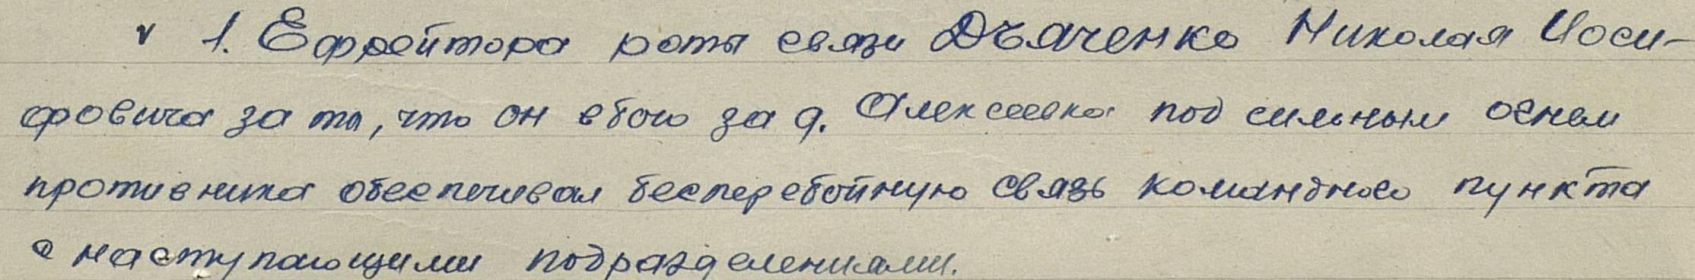 v 1. Ефрейтора роты связи Дъяченко Николая Иоси-
фовича за то, что он в бою за д. Алексеевка под сильным огнем
противника обеспечивал бесперебойную связь командного пункта
с наступающими подразделениями.